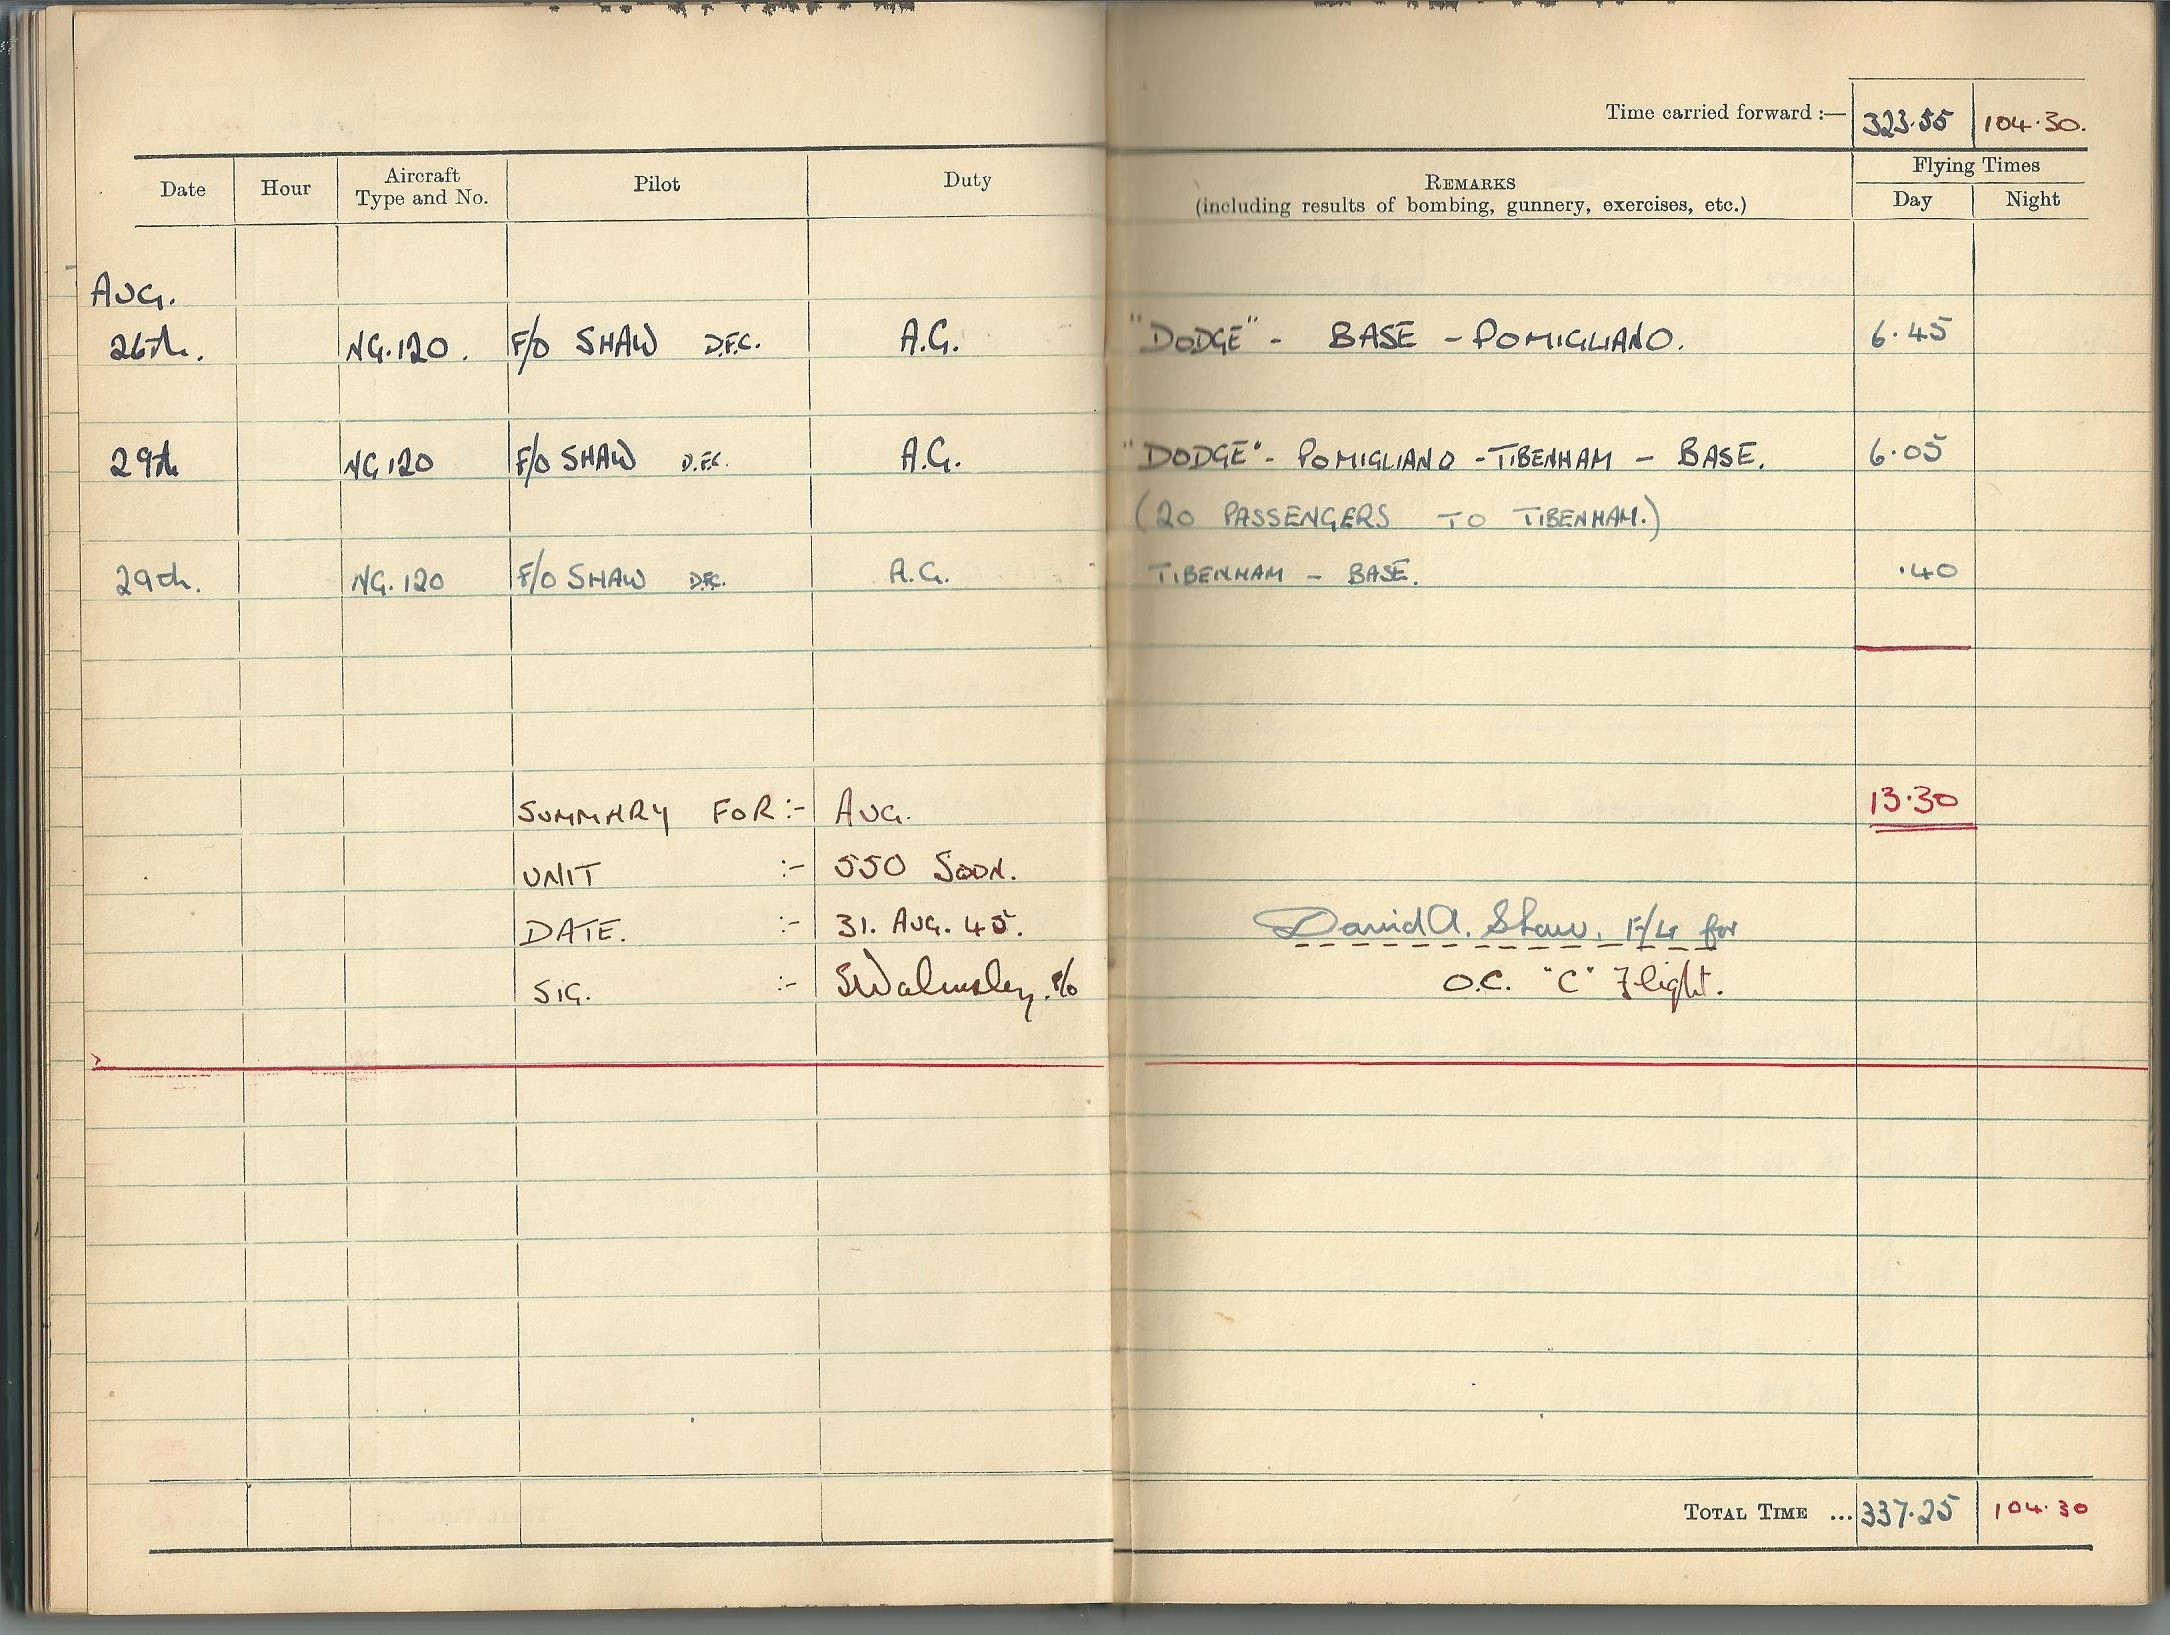 Time carried forward :— 323.55 104.30.
Date Hour Aircraft Type and No. Pilot Duty REMARKS (including results of bombing, gunnery, exercises, etc.) Flying Times Day Night
AUG.
26th. NG.120. F/O SHAW D.F.C. A.G. "DODGE" - BASE - POMIGLIANO. 6.45
29th NG 120 F/O SHAW D.F.C. A.G. "DODGE" - POMIGLIANO - TIBENHAM - BASE. 6.05
(20 PASSENGERS TO TIBENHAM.)
29th. NG.120 F/O SHAW D.F.C. A.G. TIBENHAM - BASE. .40
SUMMARY FOR :- AUG. 13.30
UNIT :- 550 SQDN.
DATE. :- 31. AUG. 45. David A. Shaw. F/Lt for
SIG. :- SWalmsley. F/O O.C. "C" Flight.
TOTAL TIME ... 337.25 104.30